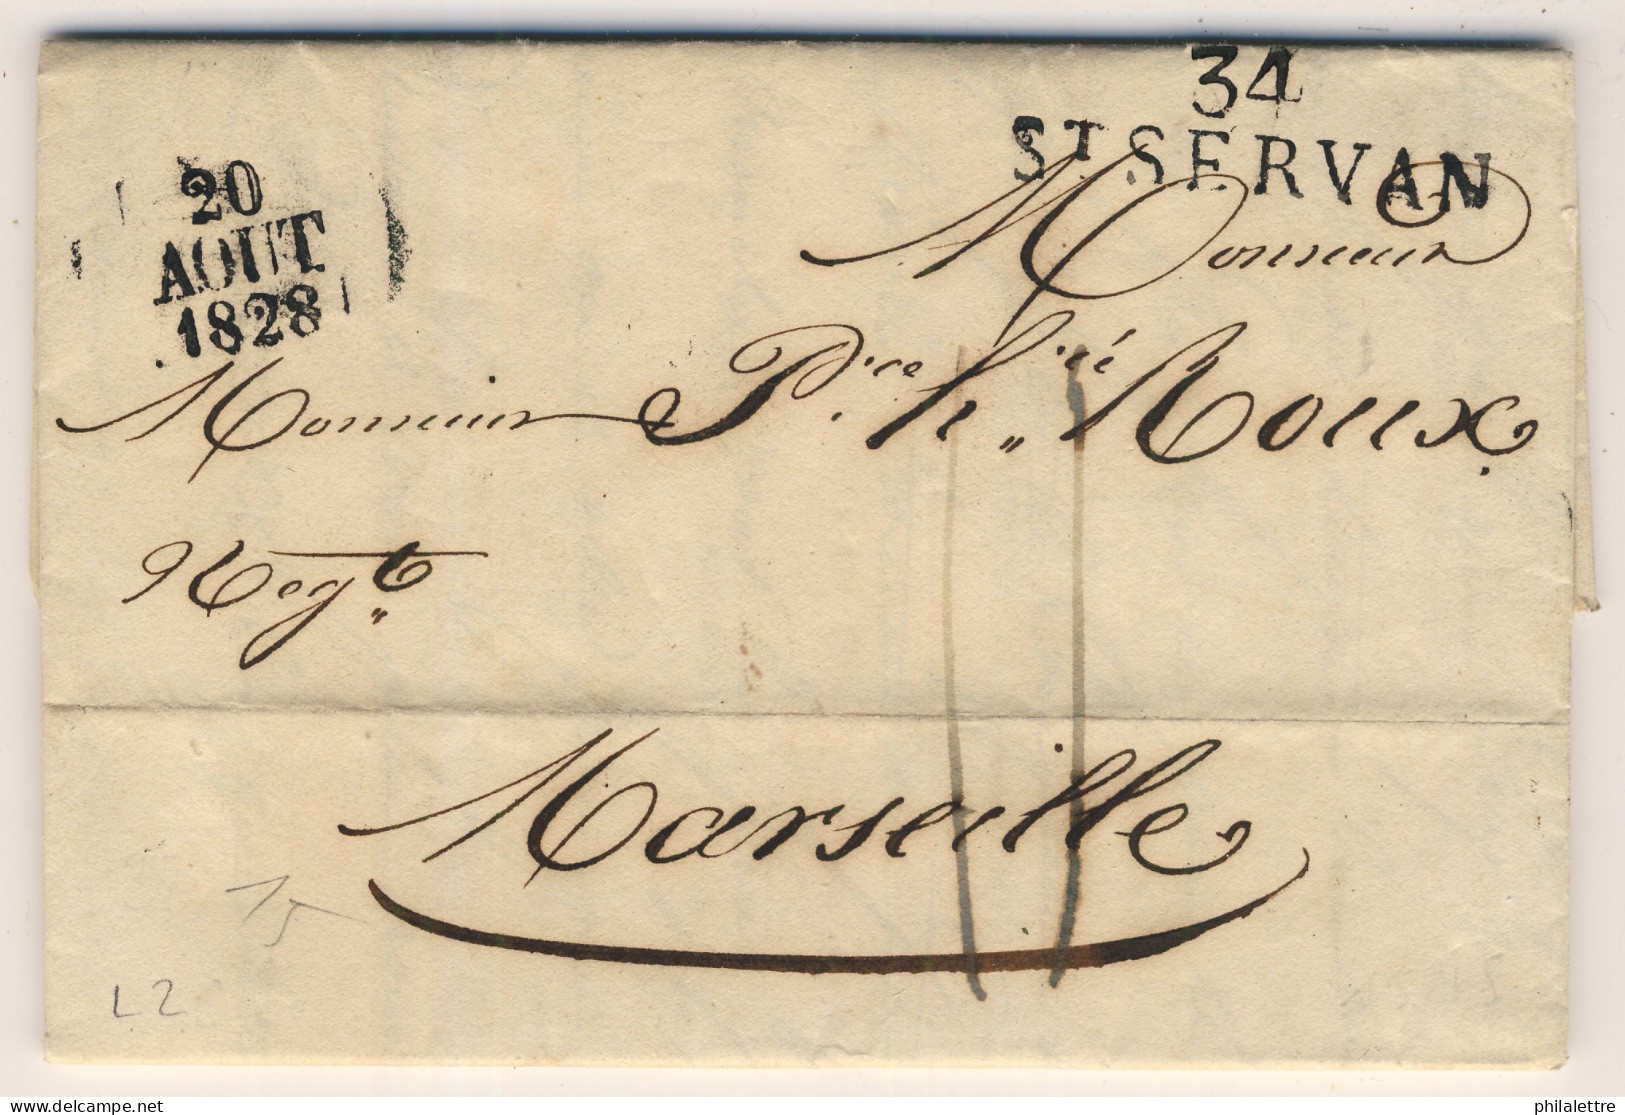 34
ST SERVAN
20
AOUT
1828
Monsieur
Monsieur Pce. hré Roux.
Negt
11
Marseille
15
L2
delcampe.net
philalettre